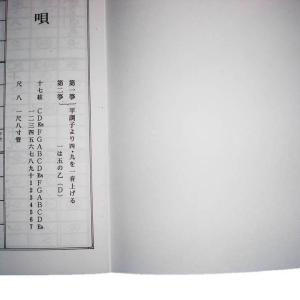 唄
第一箏 平調子より四・九を一音上げる
第二箏 一は五の乙(D)
十七絃 C D Es F G A B C D Es F G A B C D Es
一二三四五六七八九十1234567
尺八 一尺八寸管